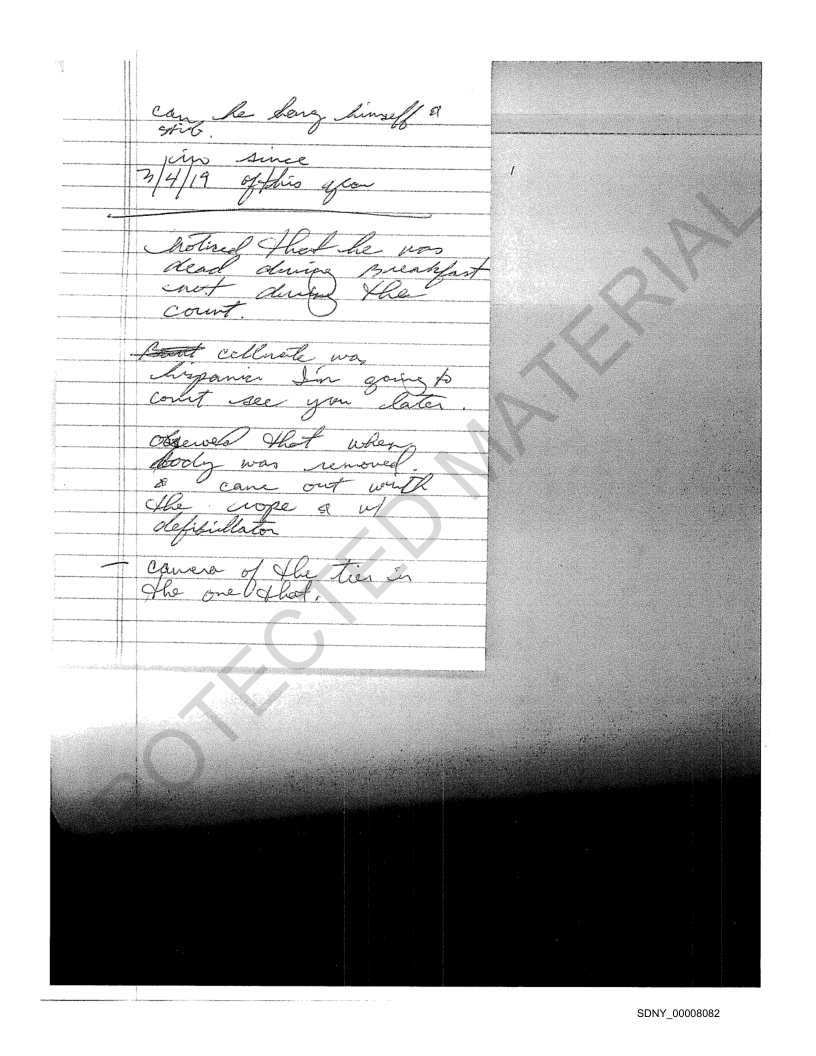 can he hang himself &
since
3/4/19 of this year
noticed that he was
dead during Breakfast
not during the
count.
cellmate was
hispanic I'm going to
court see you later.
observed that when
body was removed.
& came out with
the rope & w/
defibillator
— camera of the tier in
the one that.
PROTECTED MATERIAL
SDNY_00008082